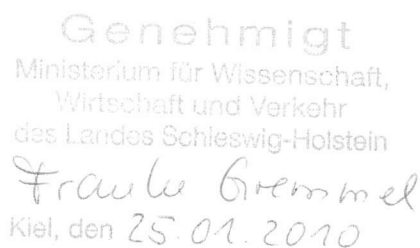 Genehmigt
Ministerium für Wissenschaft,
Wirtschaft und Verkehr
des Landes Schleswig-Holstein
Frauke Gremmel
Kiel, den 25.01.2010